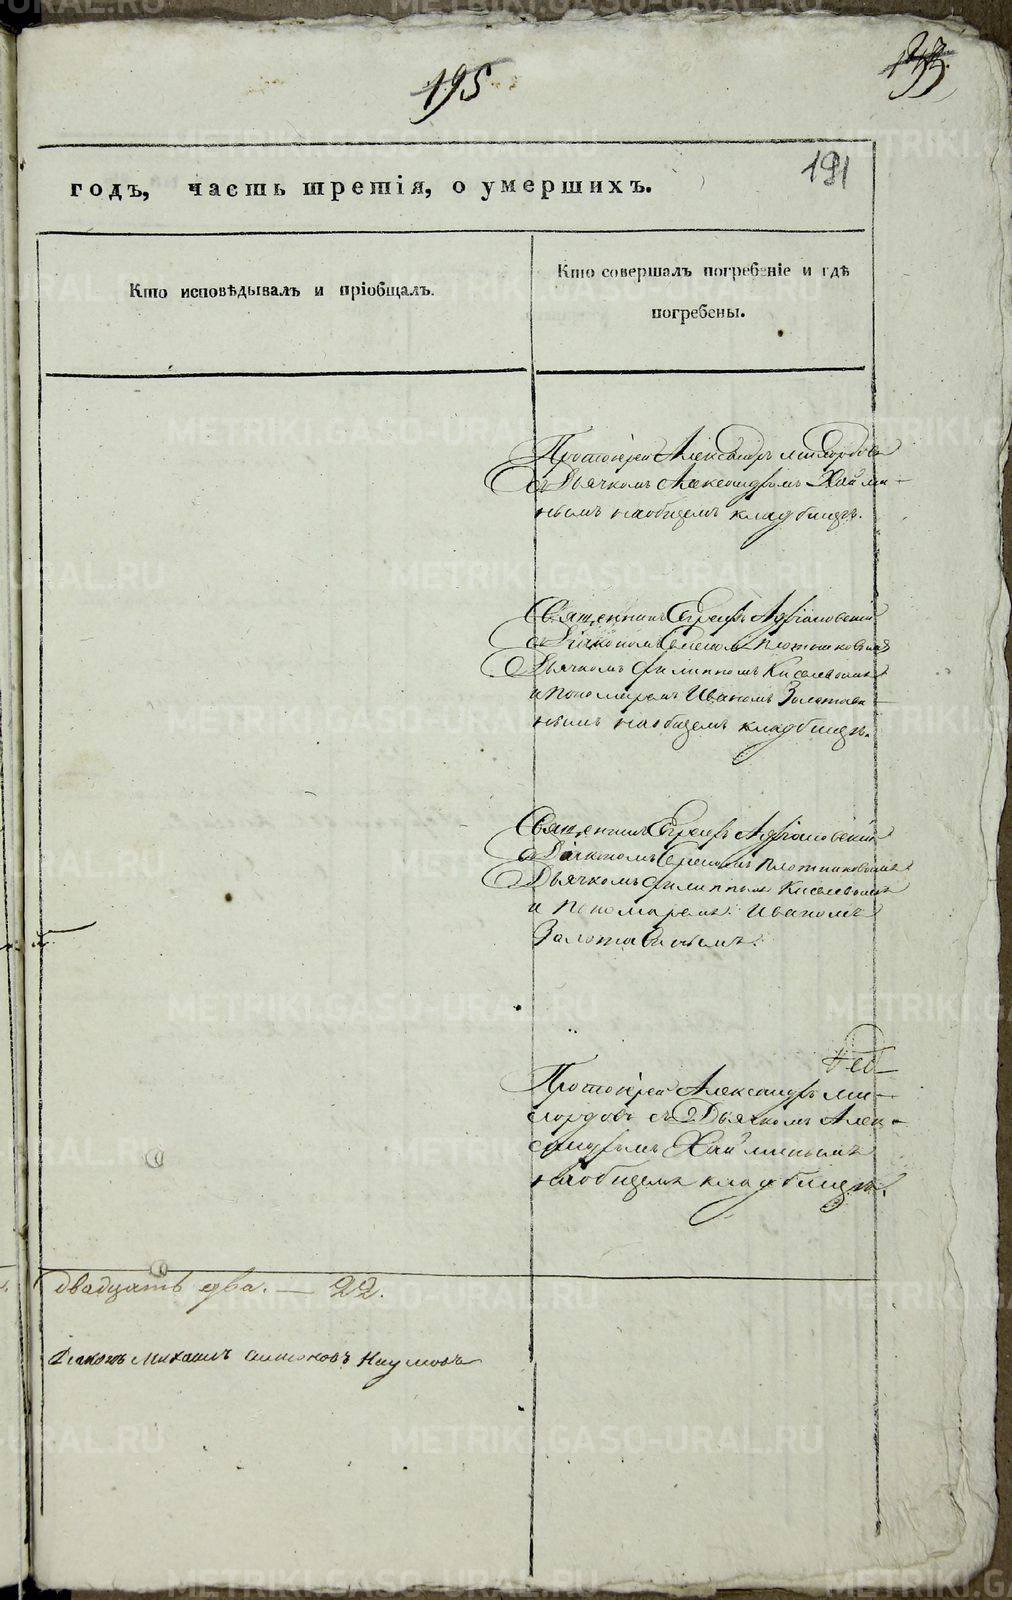 195
191
годъ, часть третія, о умершихъ.
Кто исповѣдывалъ и пріобщалъ.
Кто совершалъ погребеніе и гдѣ
погребены.
Протоіерей Александръ Милордовъ
съ Дьячкомъ Александромъ Хаймин-
нымъ на общемъ кладбищѣ.
Священникъ Сергей Адріановскій
съ Діакономъ Плотниковымъ
Дьячкомъ Филиппомъ Киселевымъ
и Пономаремъ Иваномъ
на общемъ кладбищѣ.
Священникъ Сергей Адріановскій
съ Діакономъ Плотниковымъ
Дьячкомъ Филиппомъ Киселевымъ
и Пономаремъ Иваномъ
Протоіерей Александръ Ми-
лордовъ съ Дьячкомъ Алек-
сандромъ Хайминымъ
на общемъ кладбищѣ.
двадцать два. — 22.
Діаконъ Михаилъ Наумовъ
METRIKI.GASO-URAL.RU